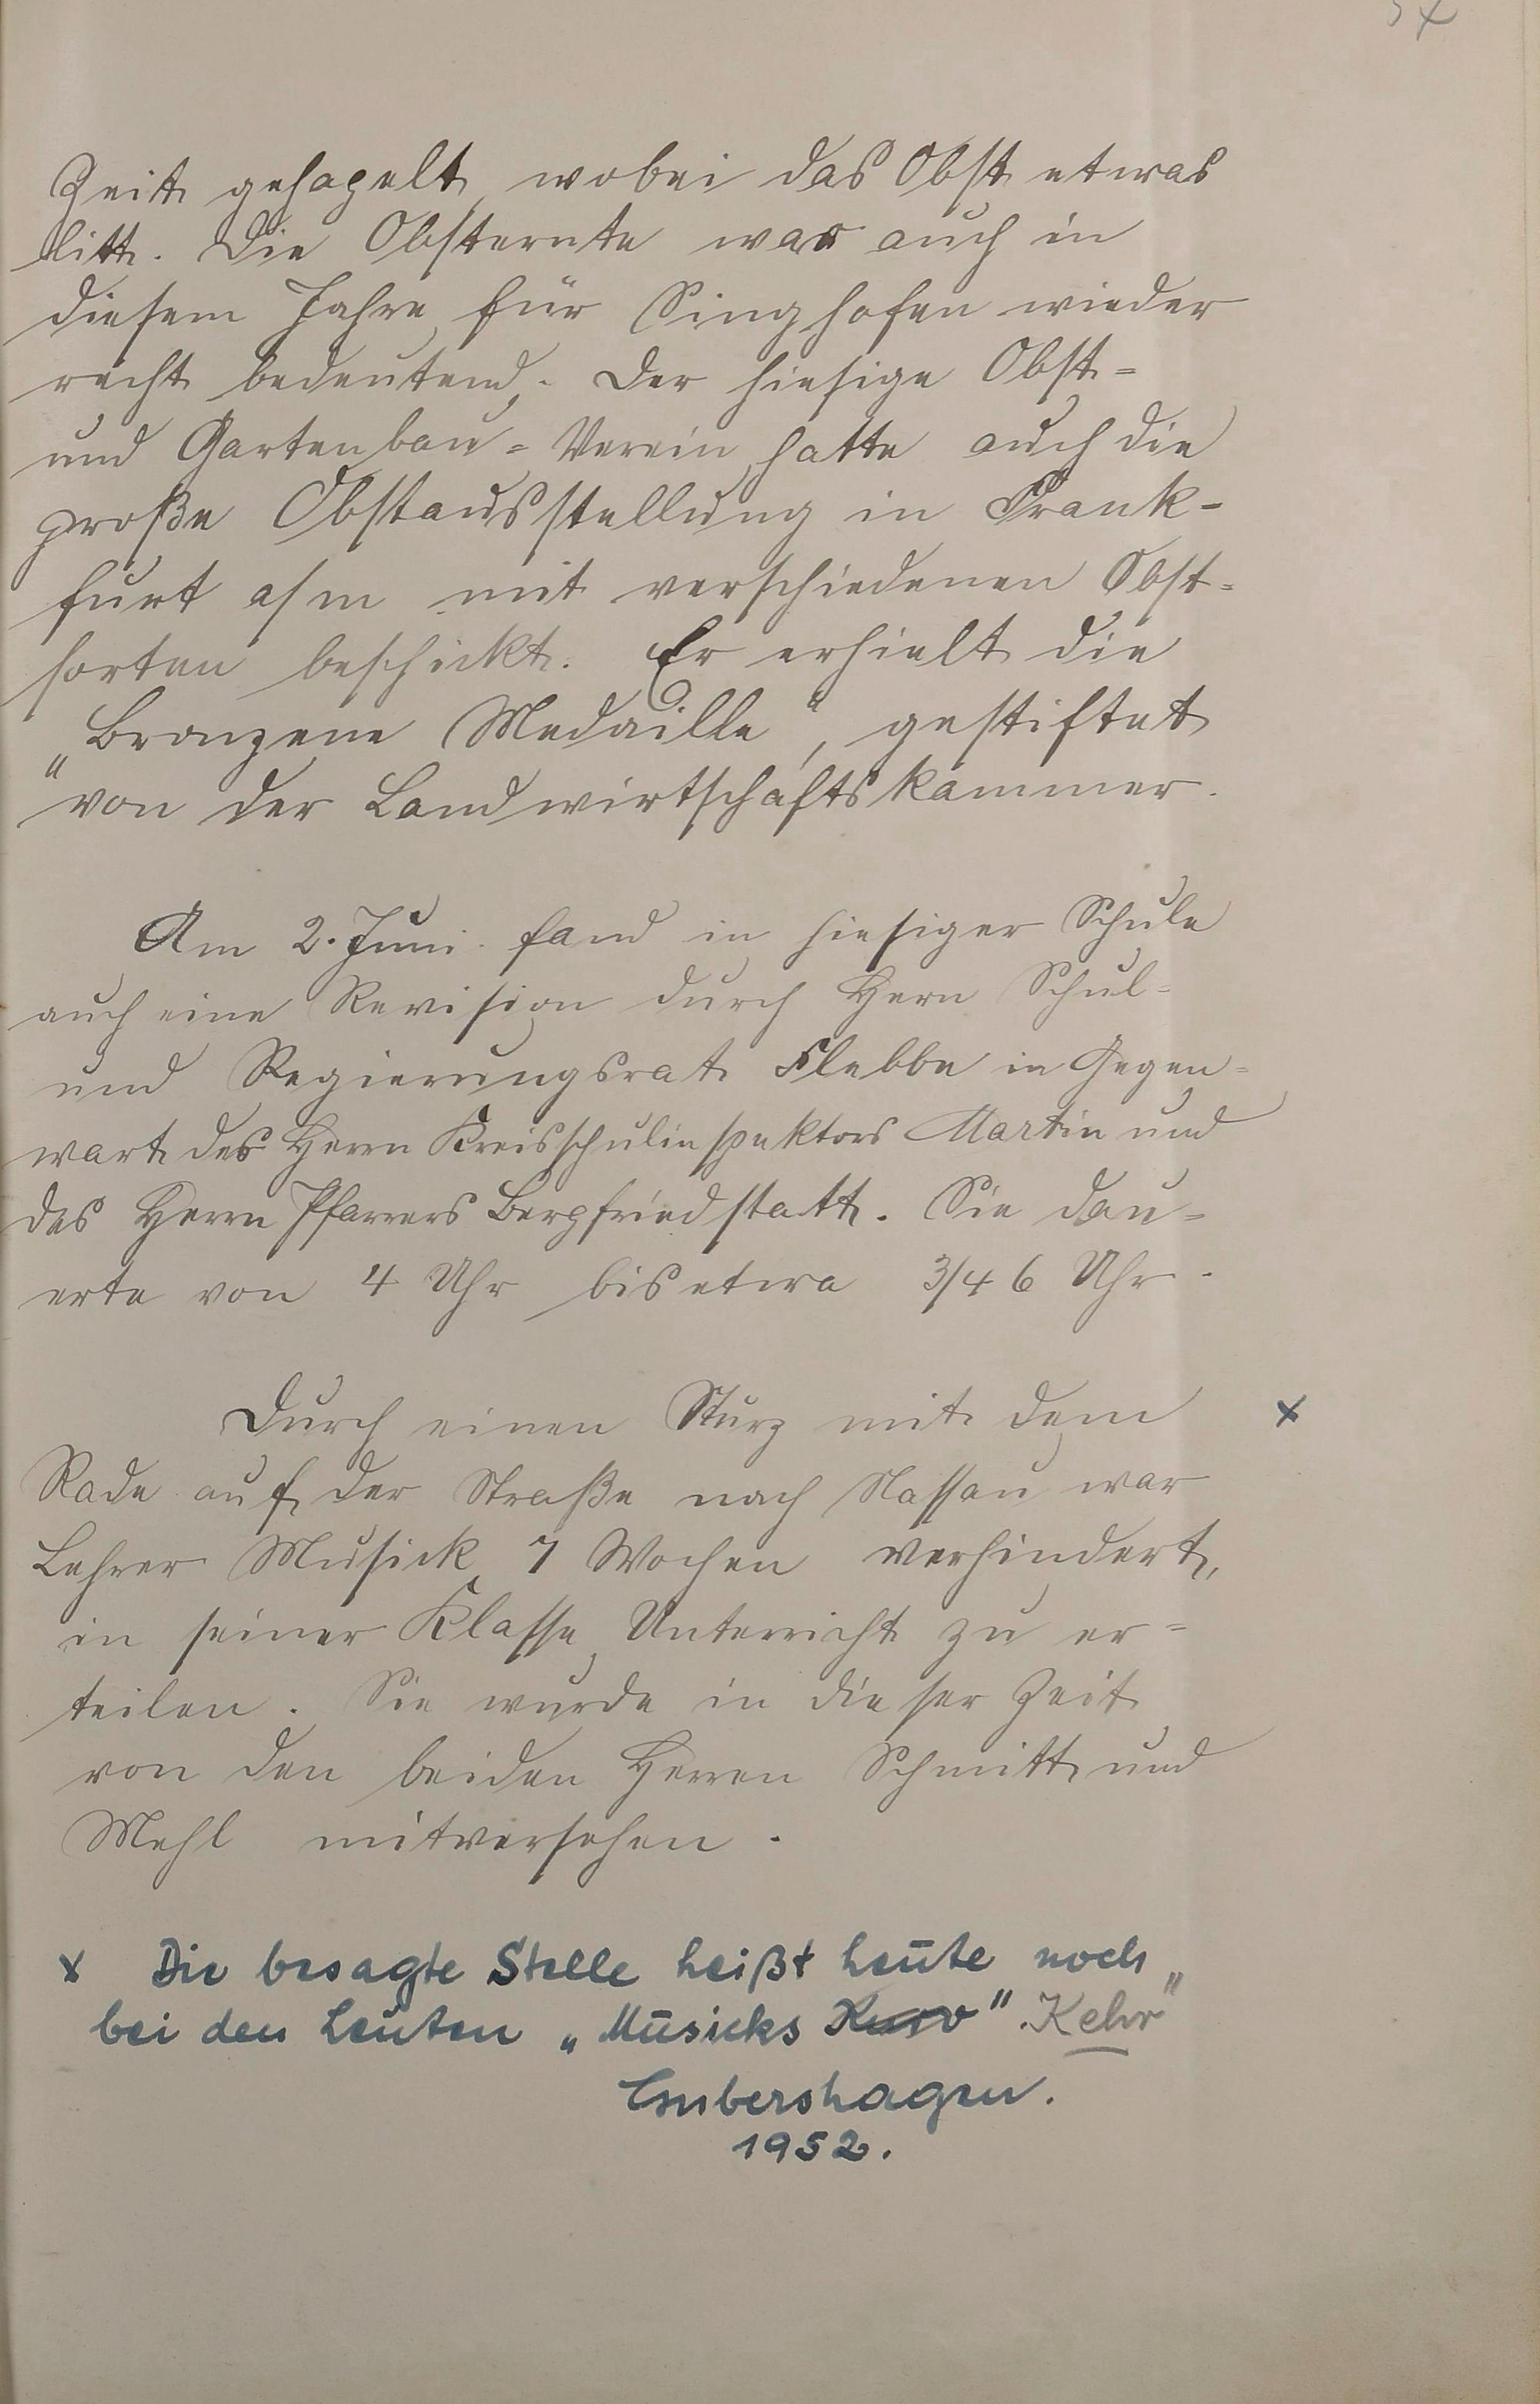 Zeit gehagelt, wobei das Obst etwas
litt. Die Obsternte war auch in
diesem Jahre für Singhofen wieder
recht bedeutend. Der hiesige Obst=
und Gartenbau=Verein hatte auch die
große Obstausstellung in Frank-
furt a/m mit verschiedenen Obst=
sorten beschickt. Er erhielt die
„Bronzene Medaille“, gestiftet
von der Landwirtschaftskammer.
Am 2. Juni fand in hiesiger Schule
auch eine Revision durch Herrn Schul=
und Regierungsrat Flebbe in Gegen=
wart des Herrn Kreisschulinspektors Martin und
des Herrn Pfarrers Bergfriedstatt. Sie dau=
erte von 4 Uhr bis etwa 3/4 6 Uhr.
Durch einen Sturz mit dem x
Rade auf der Straße nach Nassau war
Lehrer Musick 7 Wochen verhindert,
in seiner Klasse Unterricht zu er=
teilen. Sie wurde in dieser Zeit
von den beiden Herren Schmitt und
Mehl mitversehen.
x Die besagte Stelle heißt heute noch
bei den Leuten „Musicks Kurv“ „Kehr“
1952.